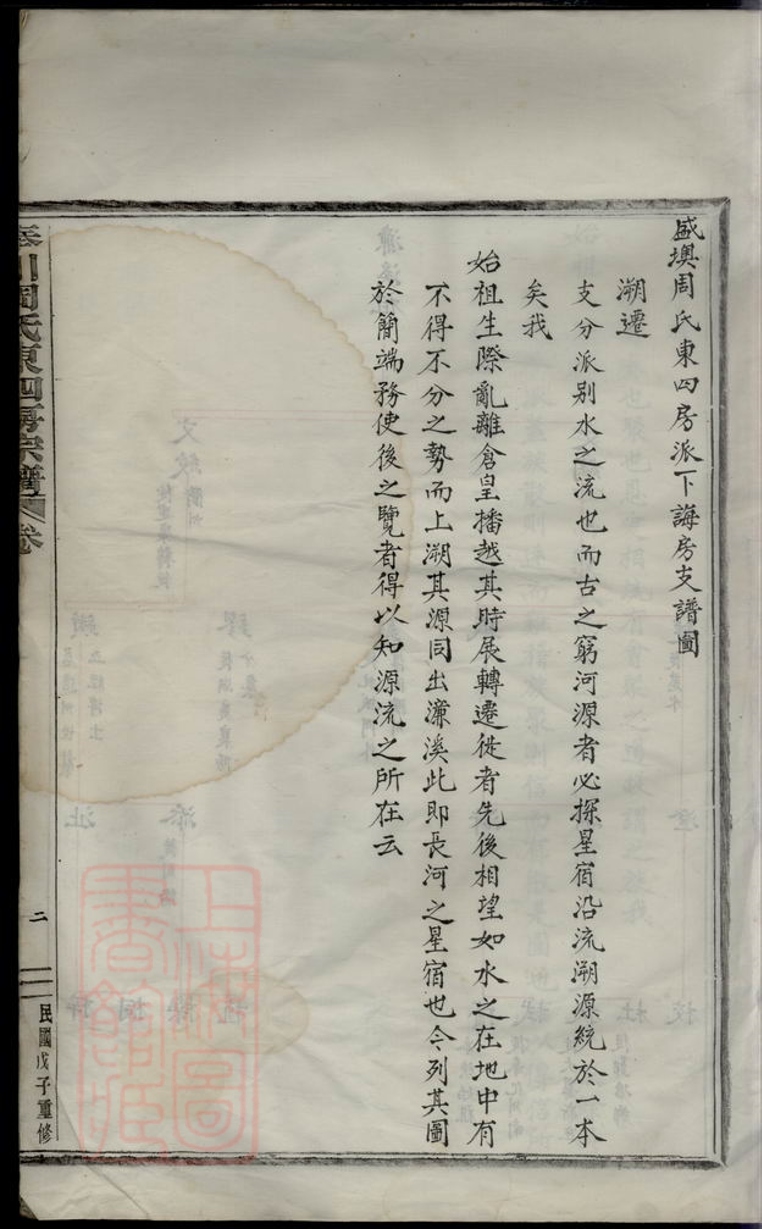 盛墺周氏東四房派下誨房支譜圖
溯遷
支分派别水之流也而古之窮河源者必探星宿沿流溯源統於一本
矣我
始祖生際亂離倉皇播越其時展轉遷徙者先後相望如水之在地中有
不得不分之勢而上溯其源同出濂溪此即長河之星宿也今列其圖
於簡端務使後之覽者得以知源流之所在云
川周氏東四房宗譜 卷
二
民國戊子重修
上海圖書館